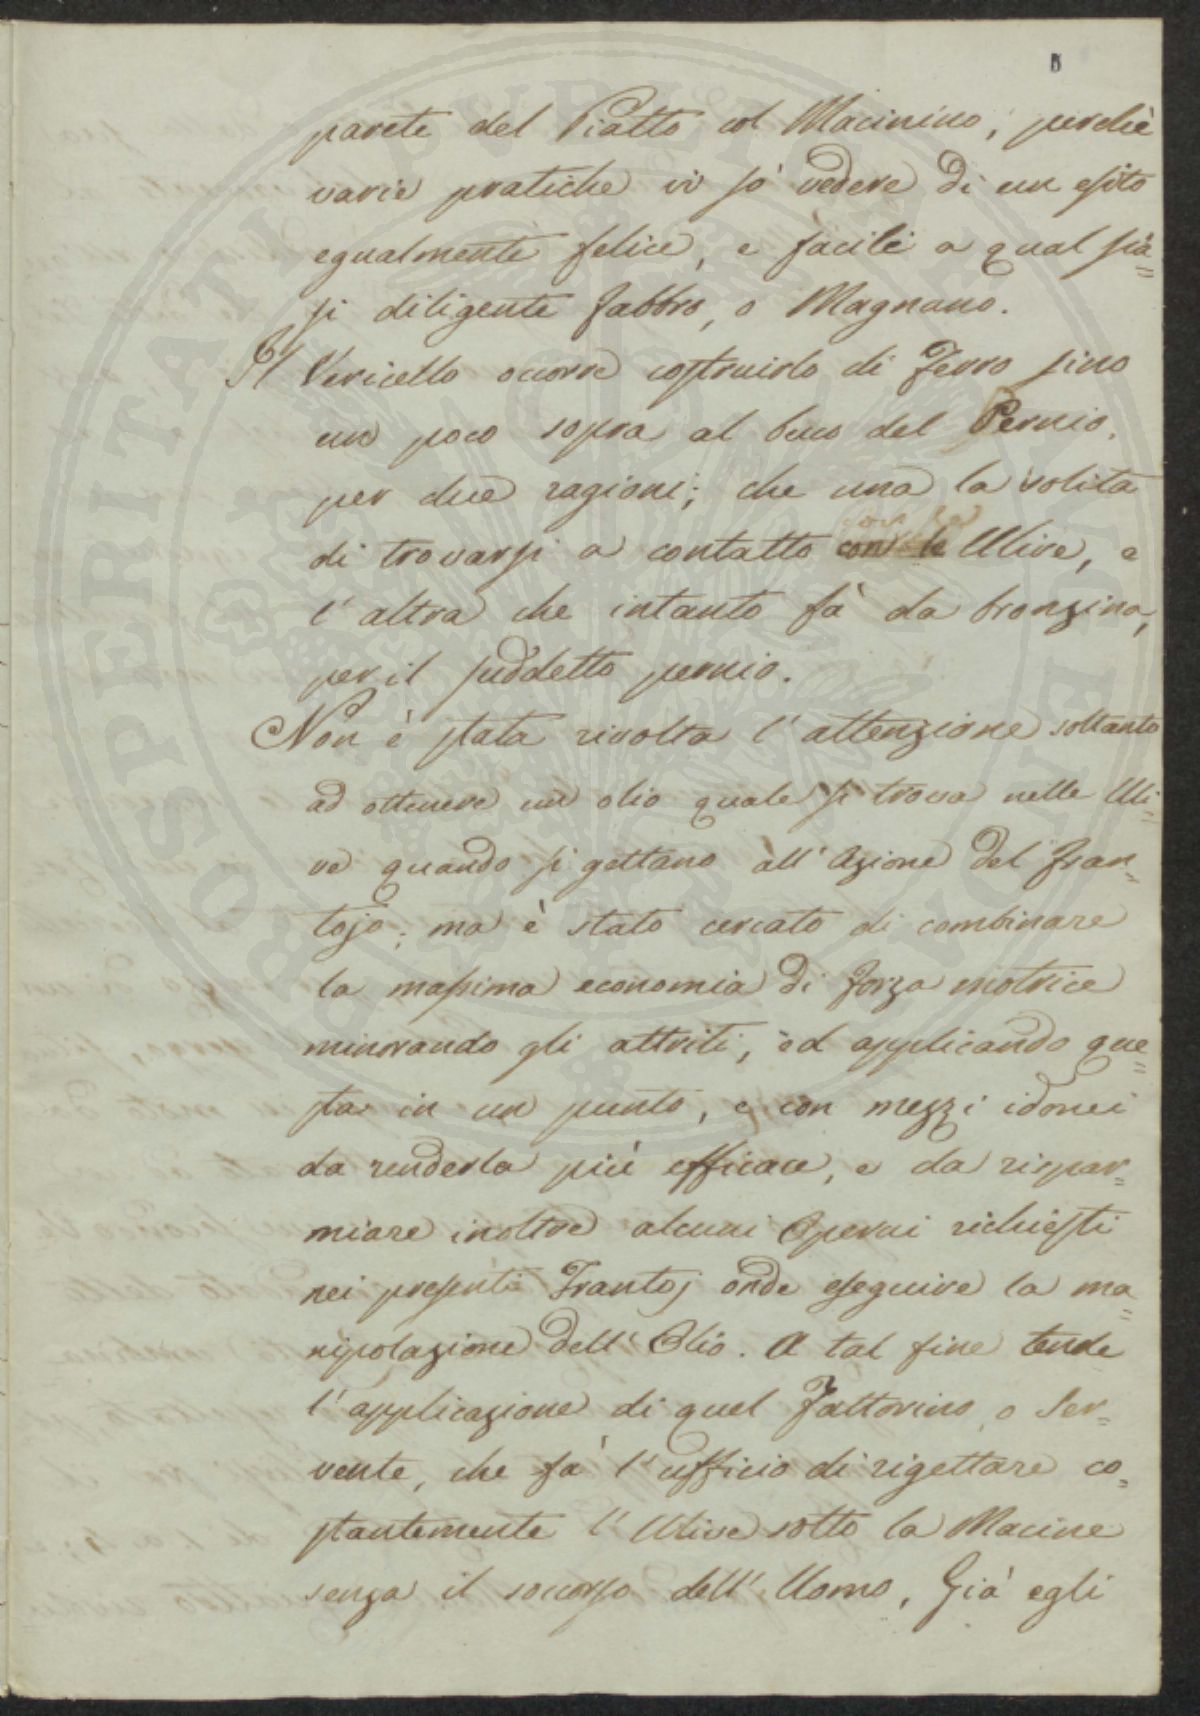 parete del Piatto col Macinino; perchè
varie pratiche vi sò vedere di un esito
egualmente felice, e facile a qual sia=
si diligente Fabbro, o Magnano.
Il Vericello occorre costruirlo di Ferro sino
un poco sopra al buco del Pernio,
per due ragioni; che una la solita
di trovarsi a contatto con le Ulive, e
l'altra che intanto fà da bronzina,
per il suddetto pernio.
Non è stata rivolta l'attenzione soltanto
ad ottenere un olio quale si trova nelle Uli=
ve quando si gettano all'Azione del Fran=
tojo; ma è stato cercato di combinare
la massima economia di forza motrice
minorando gli attriti, ed applicando que=
sta in un punto, e con mezzi idonei
da renderla più efficace, e da rispar=
miare inoltre alcuni Operai richiesti
nei presenti Frantoj onde eseguire la ma=
nipolazione dell'Olio. A tal fine tende
l'applicazione di quel Fattorino, o Ser=
vente, che fà l'ufficio di rigettare co=
stantemente l'Ulive sotto la Macine
senza il soccorso dell'Uomo, Già egli
PROSPERITATI PUBLICAE AUGENDAE